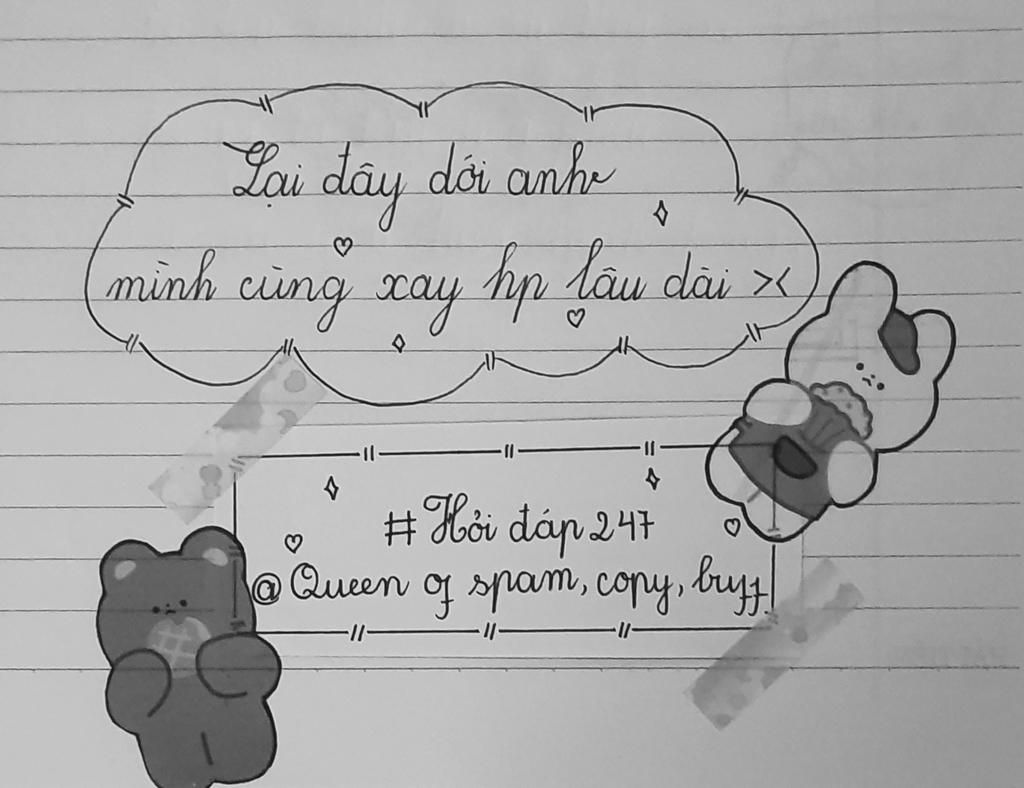 Lại đây dới anh
mình cùng xay hp lâu dài ><
# Hỏi đáp 247
@ Queen of spam, copy, buff